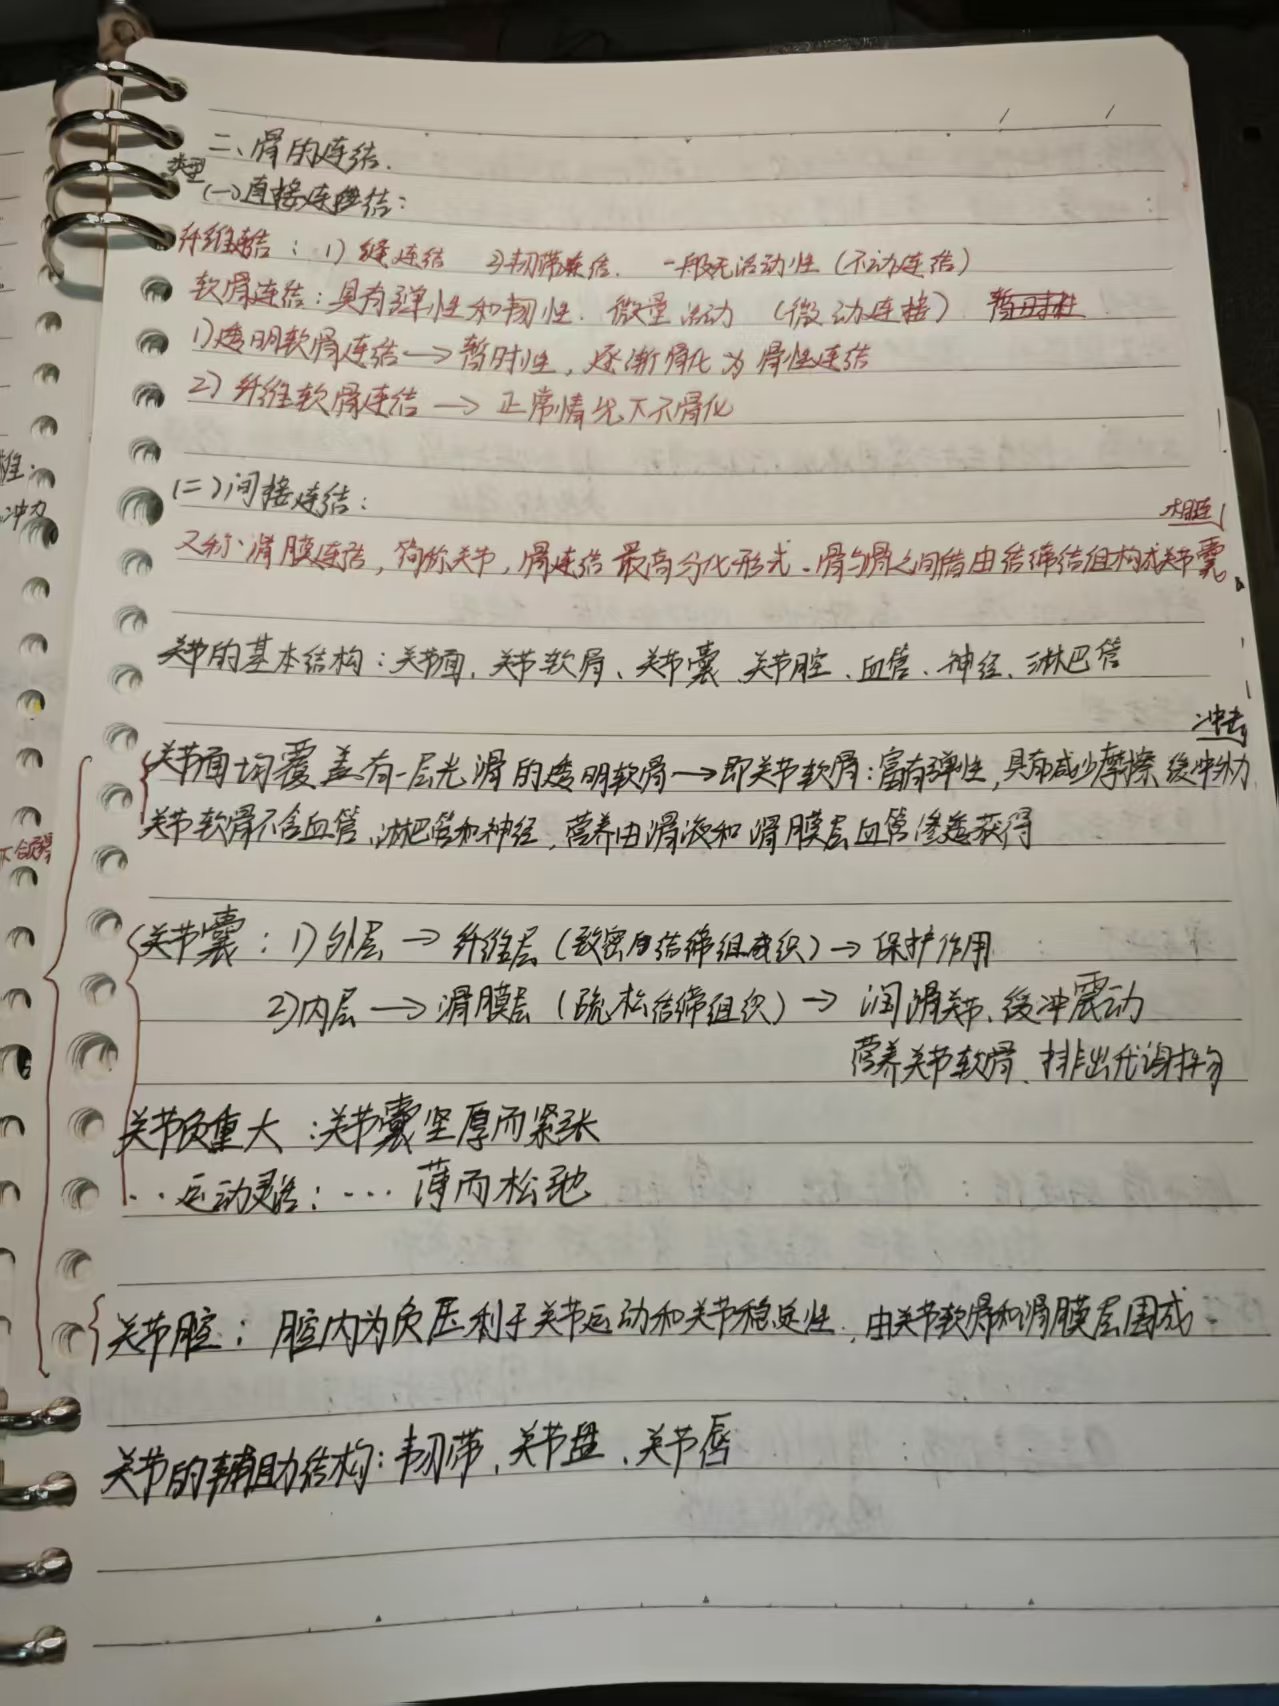 二、骨的连结.
类型
(一)直接连结:
纤维连结: 1) 缝连结 2)韧带连结. 一般无活动性 (不动连结)
软骨连结: 具有弹性和韧性. 微量活动 (微动连接)
1)透明软骨连结→暂时性, 逐渐骨化为骨性连结
2) 纤维软骨连结 → 正常情况下不骨化
(二)间接连结:
相连
又称、滑膜连结, 简称关节, 骨连结最高分化形式. 骨与骨之间借由结缔结组构成关节囊
关节的基本结构: 关节面, 关节软骨、关节囊、关节腔、血管、神经、淋巴管
冲击
关节面均覆盖有一层光滑的透明软骨→即关节软骨: 富有弹性, 具有减少摩擦, 缓冲外力
关节软骨不含血管、淋巴管和神经, 营养由滑液和滑膜层血管渗透获得
关节囊: 1) 外层 → 纤维层 (致密结缔组织) → 保护作用
2)内层 → 滑膜层 (疏松结缔组织) → 润滑关节、缓冲震动
营养关节软骨、排出代谢物
关节负重大: 关节囊坚厚而紧张
‥运动灵活: … 薄而松弛
关节腔: 腔内为负压利于关节运动和关节稳定性, 由关节软骨和滑膜层围成.
关节的辅助结构: 韧带、关节盘、关节唇
冲力